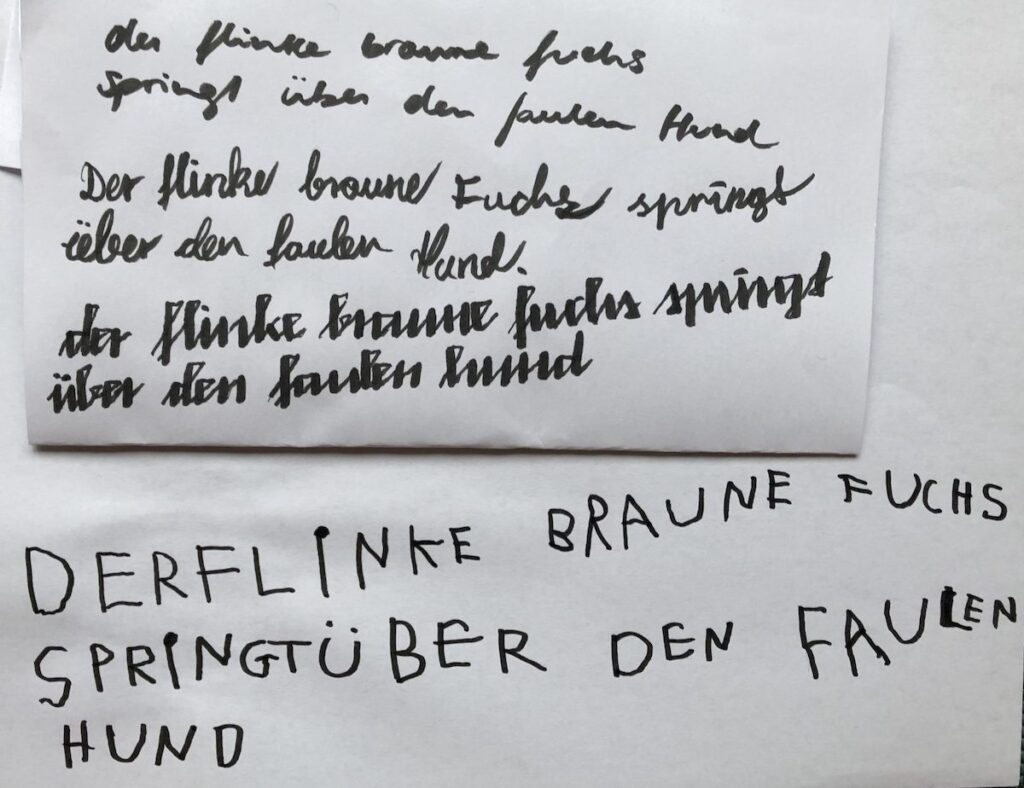 der flinke braune fuchs
springt über den faulen Hund
Der flinke braune Fuchs springt
über den faulen Hund.
der flinke braune fuchs springt
über den faulen hund
DERFLINKE BRAUNE FUCHS
SPRINGTÜBER DEN FAULEN
HUND